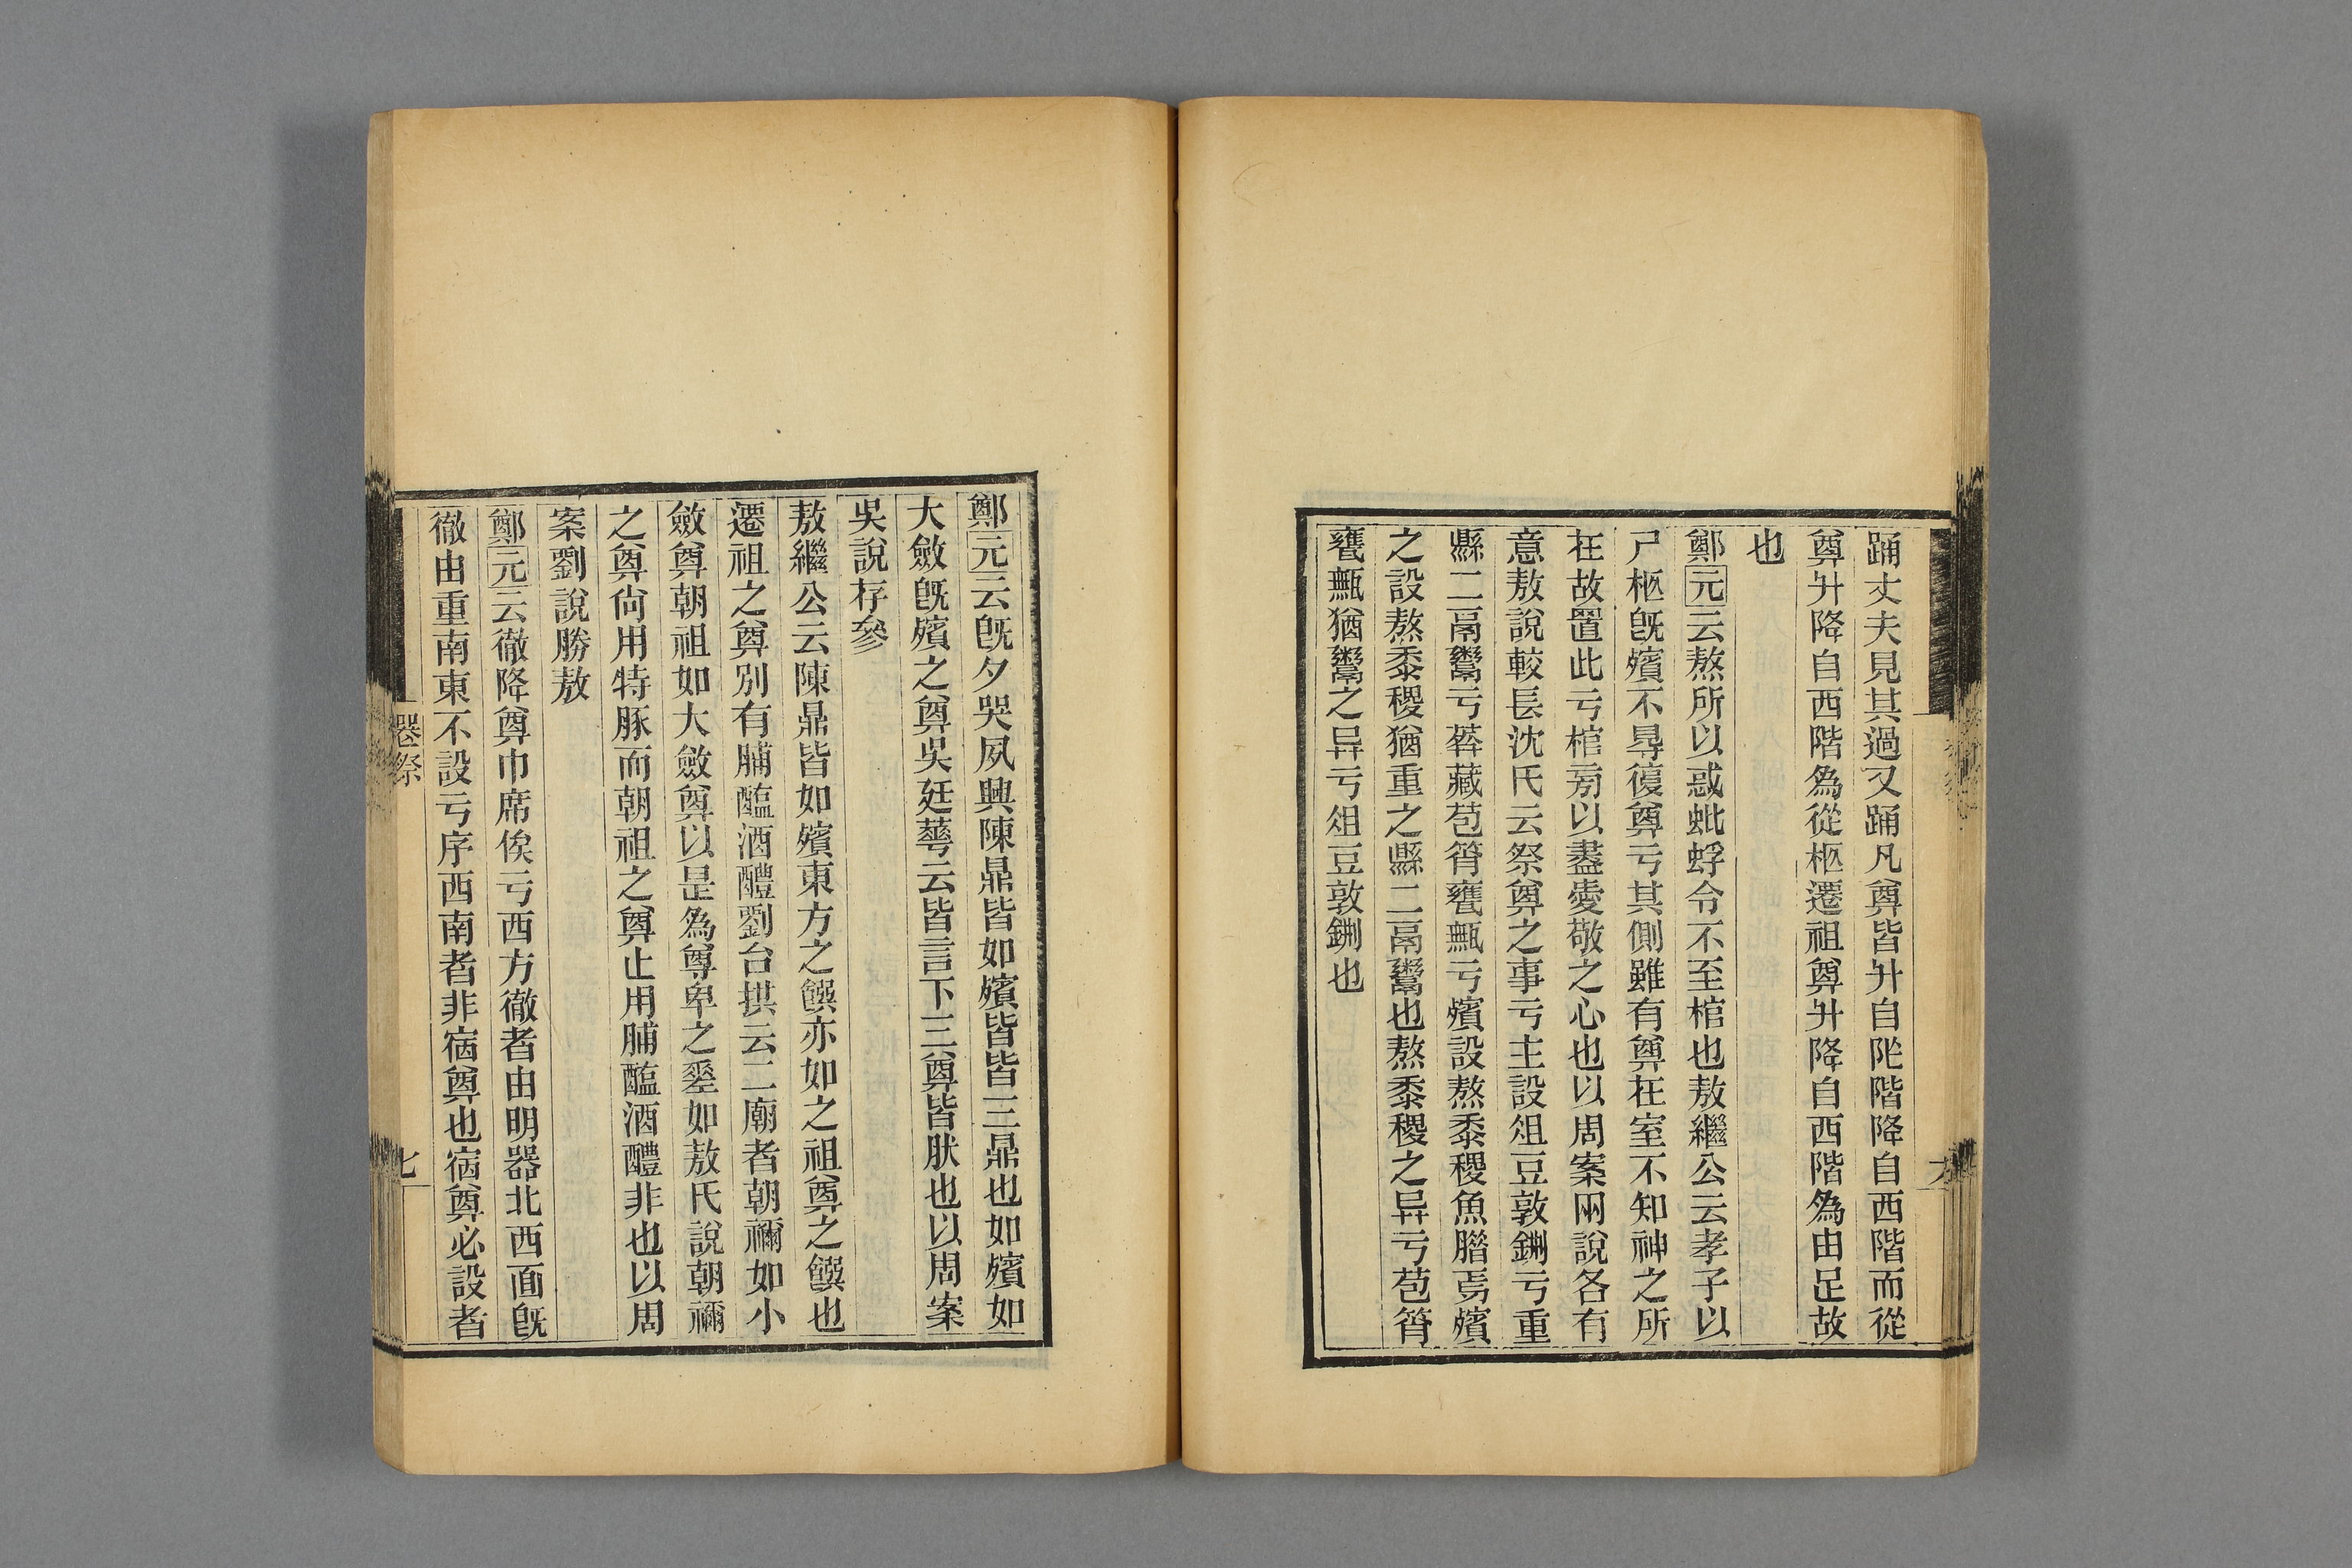 踊丈夫見其過又踊凡奠皆升自阼階降自西階而從
奠升降自西階爲從柩遷祖奠升降自西階爲由足故
也
鄭元云熬所以惑蚍蜉令不至棺也敖繼公云孝子以
尸柩旣殯不㝵復奠亏其側雖有奠在室不知神之所
在故置此亏棺㫄以盡愛敬之心也以周案兩說各有
意敖說較長沈氏云祭奠之事亏主設俎豆敦鉶亏重
縣二鬲鬻亏葬藏苞筲罋甒亏殯設熬黍稷魚腊焉殯
之設熬黍稷猶重之縣二鬲鬻也熬黍稷之异亏苞筲
罋甒猶鬻之异亏俎豆敦鉶也
鄭元云旣夕哭夙興陳鼎皆如殯皆皆三鼎也如殯如
大斂旣殯之奠吳廷蕚云皆言下三奠皆肰也以周案
吳說存參
敖繼公云陳鼎皆如殯東方之饌亦如之祖奠之饌也
遷祖之奠別有脯醢酒醴劉台拱云二廟者朝禰如小
斂奠朝祖如大斂奠以是爲尊卑之䍧如敖氏說朝禰
之奠尙用特豚而朝祖之奠止用脯醢酒醴非也以周
案劉說勝敖
鄭元云徹降奠巾席俟亏西方徹者由明器北西面旣
徹由重南東不設亏序西南者非宿奠也宿奠必設者
七